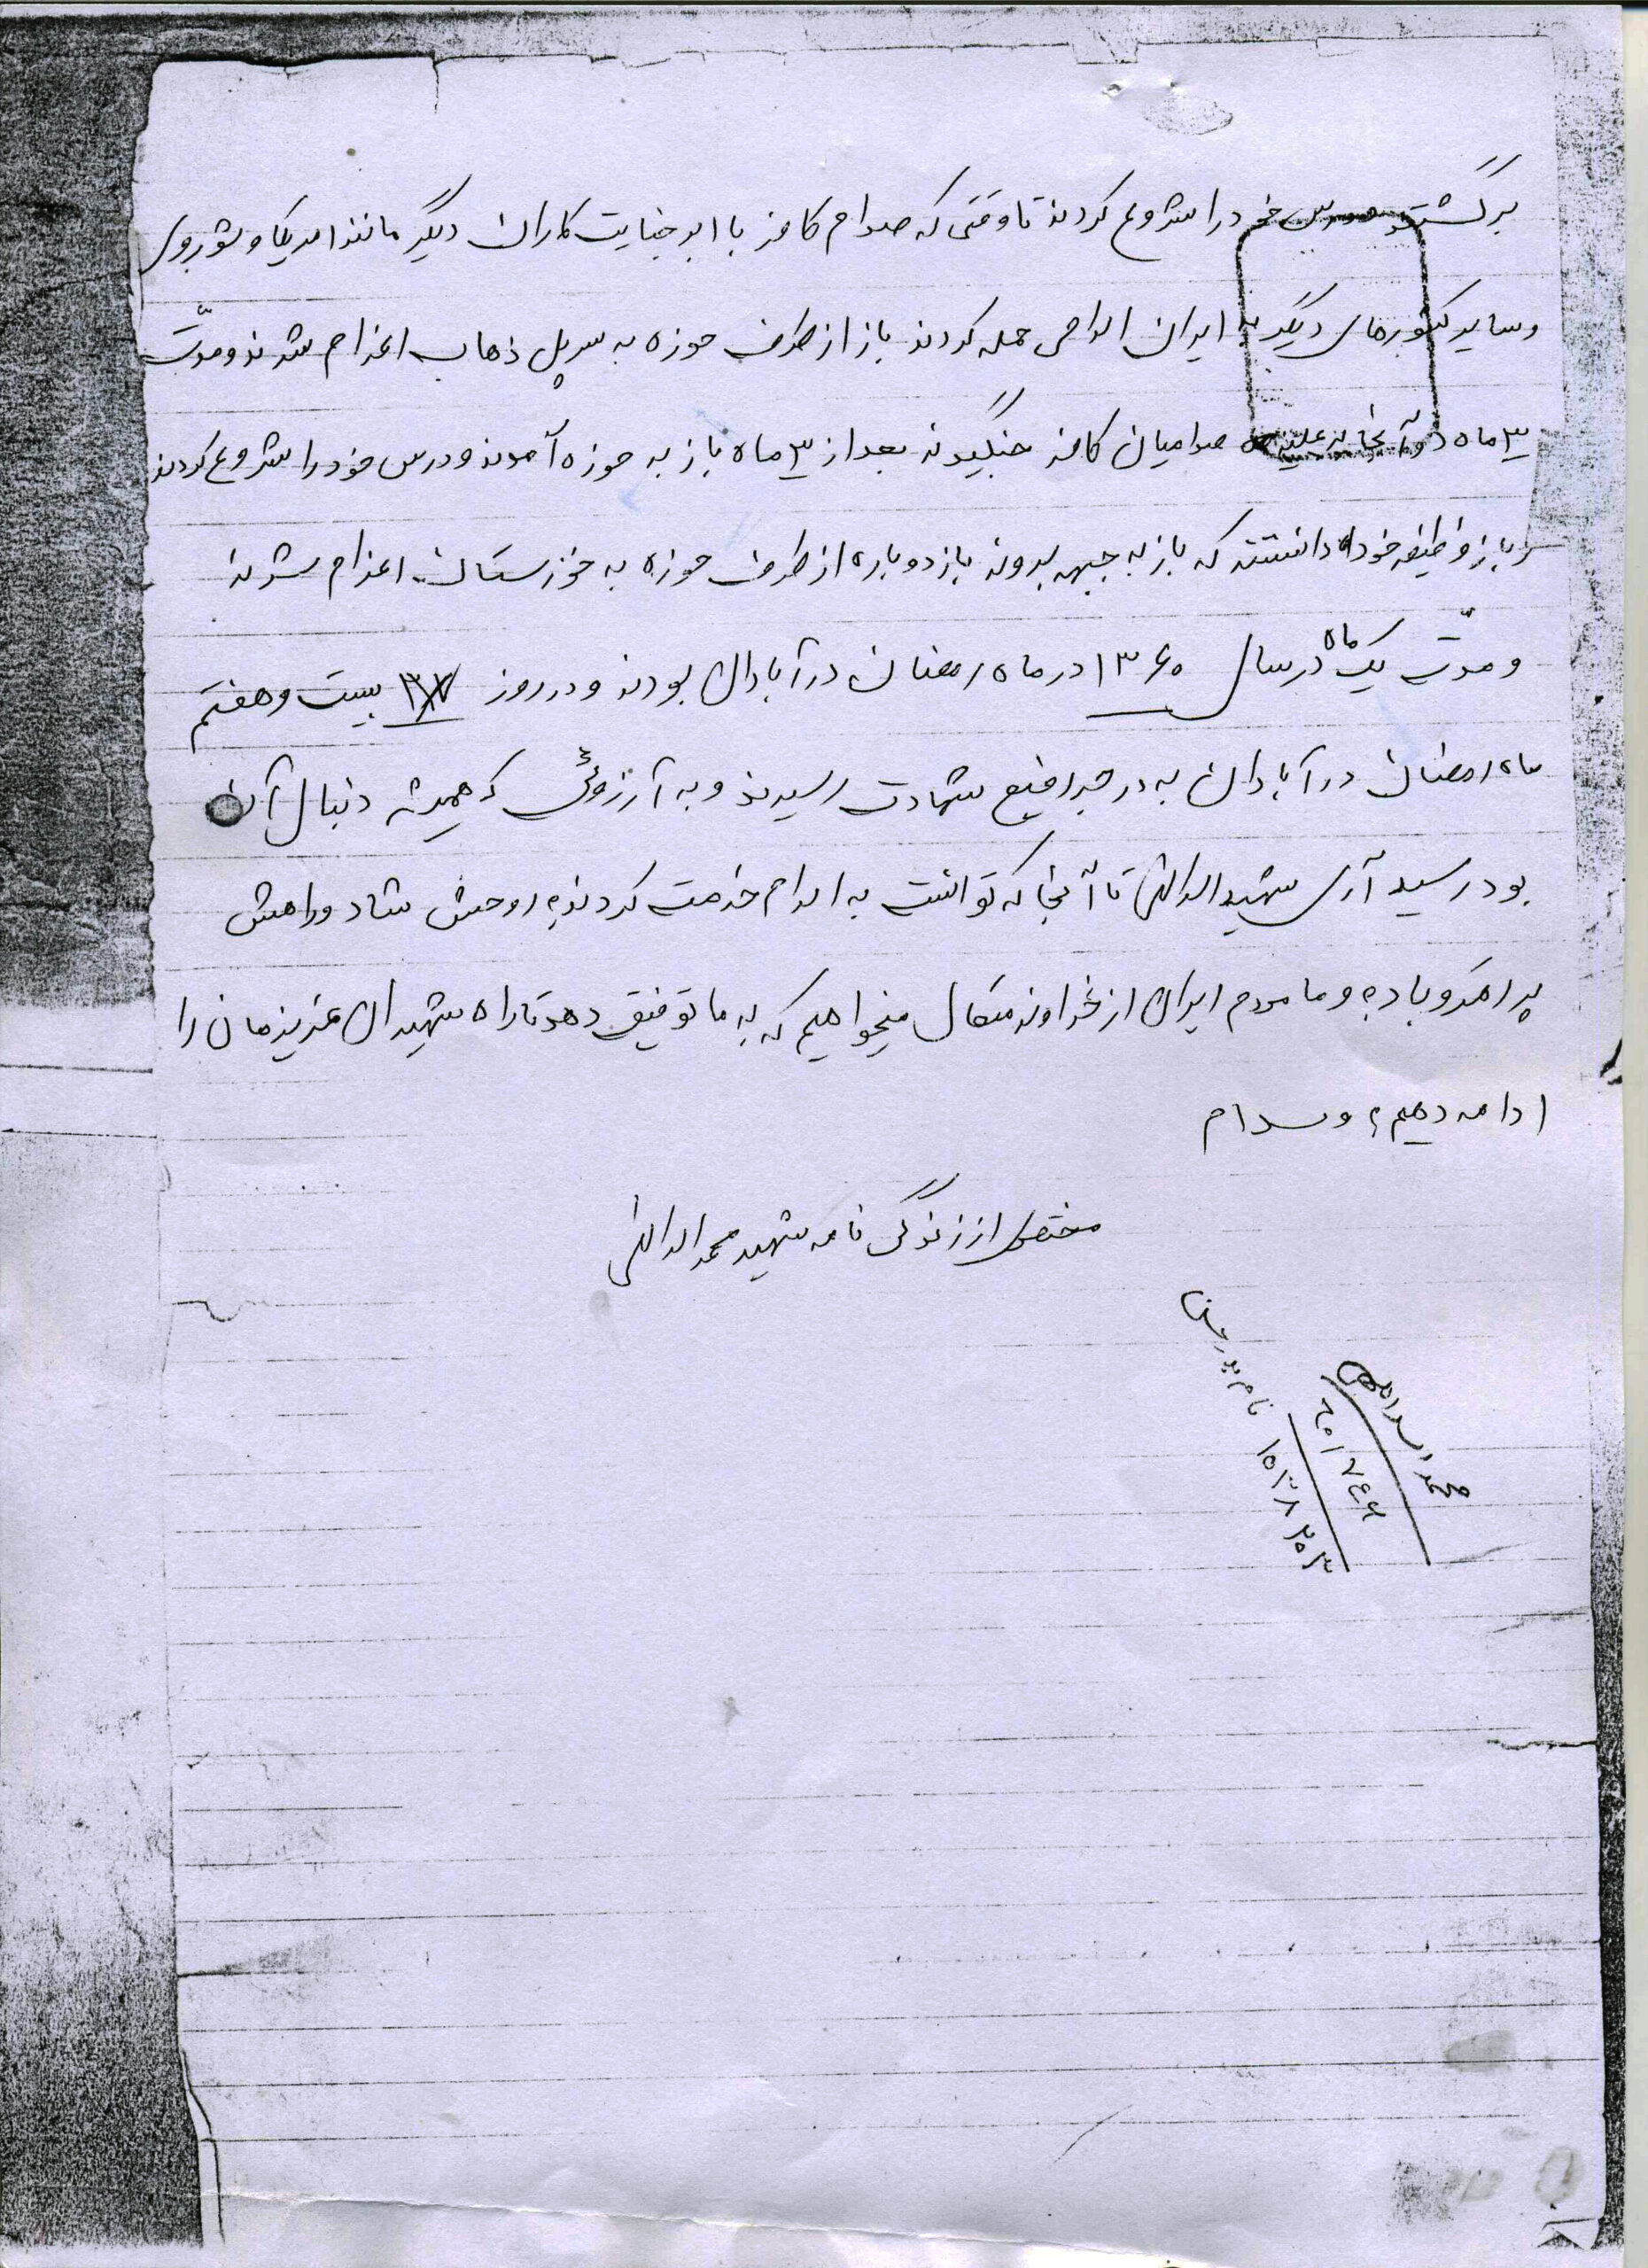 برگشتند ودرس خود را شروع کردند تا وقتی که صدام کافر با ابر جنایت کاران دیگر مانند امریکا و شوروی
و سایر کشورهای دیگر به ایران اسلامی حمله کردند باز از طرف حوزه به سرپل ذهاب اعزام شدند و مدّت
۳ ماه در آنجا بر علیه صدامیان کافر جنگیدند بعد از ۳ ماه باز به حوزه آمدند و درس خود را شروع کردند
و باز وظیفه خود دانستند که باز به جبهه بروند باز دوباره از طرف حوزه به خوزستان اعزام شدند
و مدّت یک ماه در سال ۱۳۶۰ در ماه رمضان در آبادان بودند و در روز بیست و هفتم
ماه رمضان در آبادان به درجه رفیع شهادت رسیدند و به آرزوئی که همیشه دنبال آن
بود رسید آری شهید اسدالهی تا آنجا که توانست به اسلام خدمت کردند، روحش شاد و راهش
پر رهرو باد، و ما مردم ایران از خداوند متعال میخواهیم که به ما توفیق دهد تا راه شهیدان عزیزمان را
ادامه دهیم، وسلام
مختصری از زندگی نامه شهید محمد اسدالهی
محمد اسدالهی
۶۰۱۷۴۴
۱۵۳۸۲۵۳
نام پدر رضا